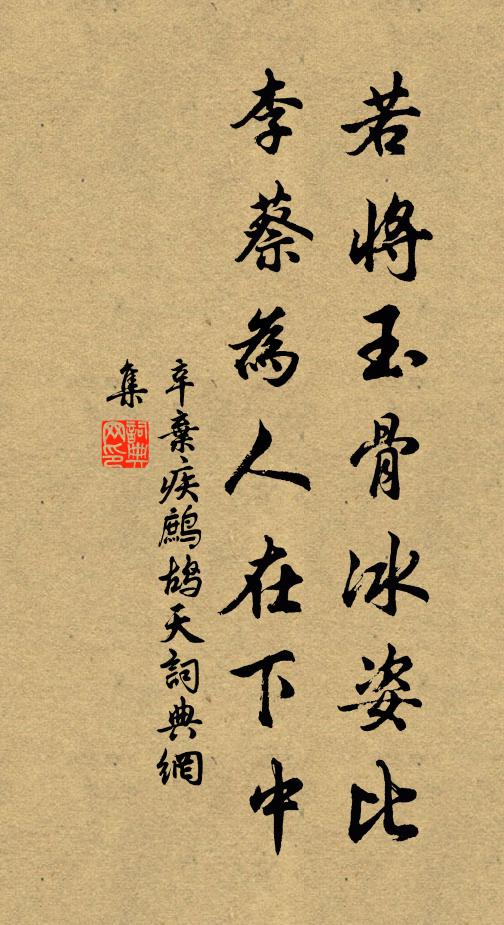 若將玉骨冰姿比
李蔡為人在下中
辛棄疾鷓鴣天詞典網
集
詞典網印